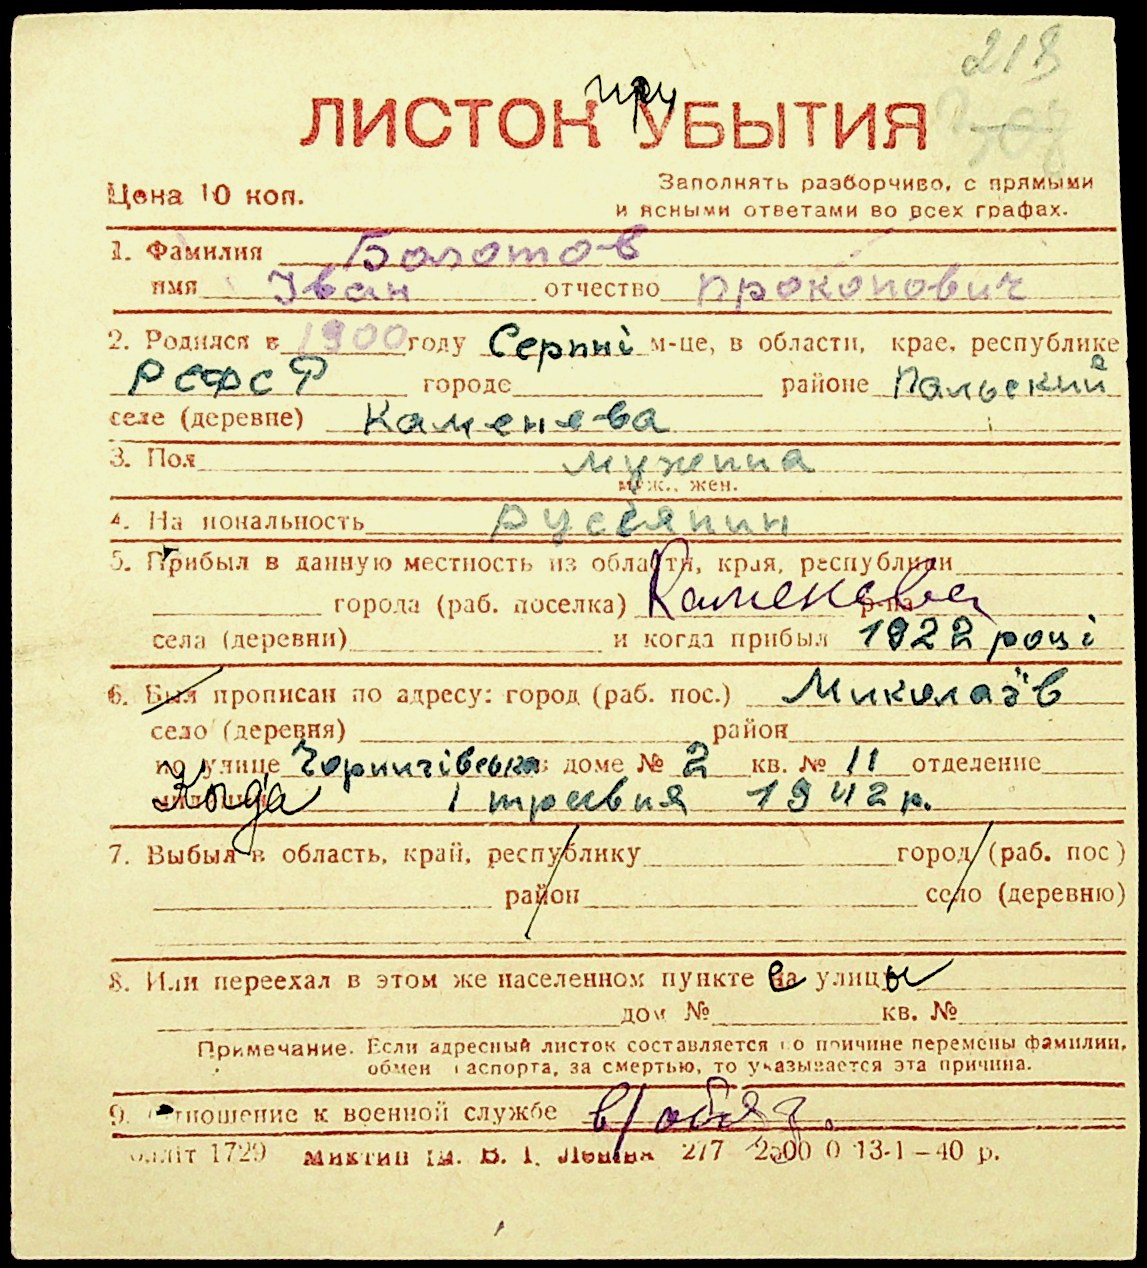 218
при
ЛИСТОК УБЫТИЯ
Цена 10 коп.
Заполнять разборчиво, с прямыми
и ясными ответами во всех графах.
1. Фамилия Болотов
имя Іван отчество Прокопович
2. Родился в 1900 году Серпні м-це, в области, крае, республике
РСФСР городе районе Пальский
селе (деревне) Каменева
3. Пол мужчина
муж., жен.
4. Национальность руссіянин
5. Прибыл в данную местность из области, края, республики
города (раб. поселка) Каменева р-на
села (деревни) и когда прибыл 1922 році
6. Был прописан по адресу: город (раб. пос.) Миколаїв
село (деревня) район
по улице в доме № 2 кв. № 11 отделение
Когда 1 травня 1942 р.
7. Выбыл в область, край, республику город (раб. пос)
район село (деревню)
8. Или переехал в этом же населенном пункте с улицы
дом № кв. №
Примечание. Если адресный листок составляется по причине перемены фамилии,
обмен паспорта, за смертью, то указывается эта причина.
9. Отношение к военной службе в/обяз.
Облліт 1729 Миктип ім. В. І. Леніна 277 2500 0 13-1-40 р.